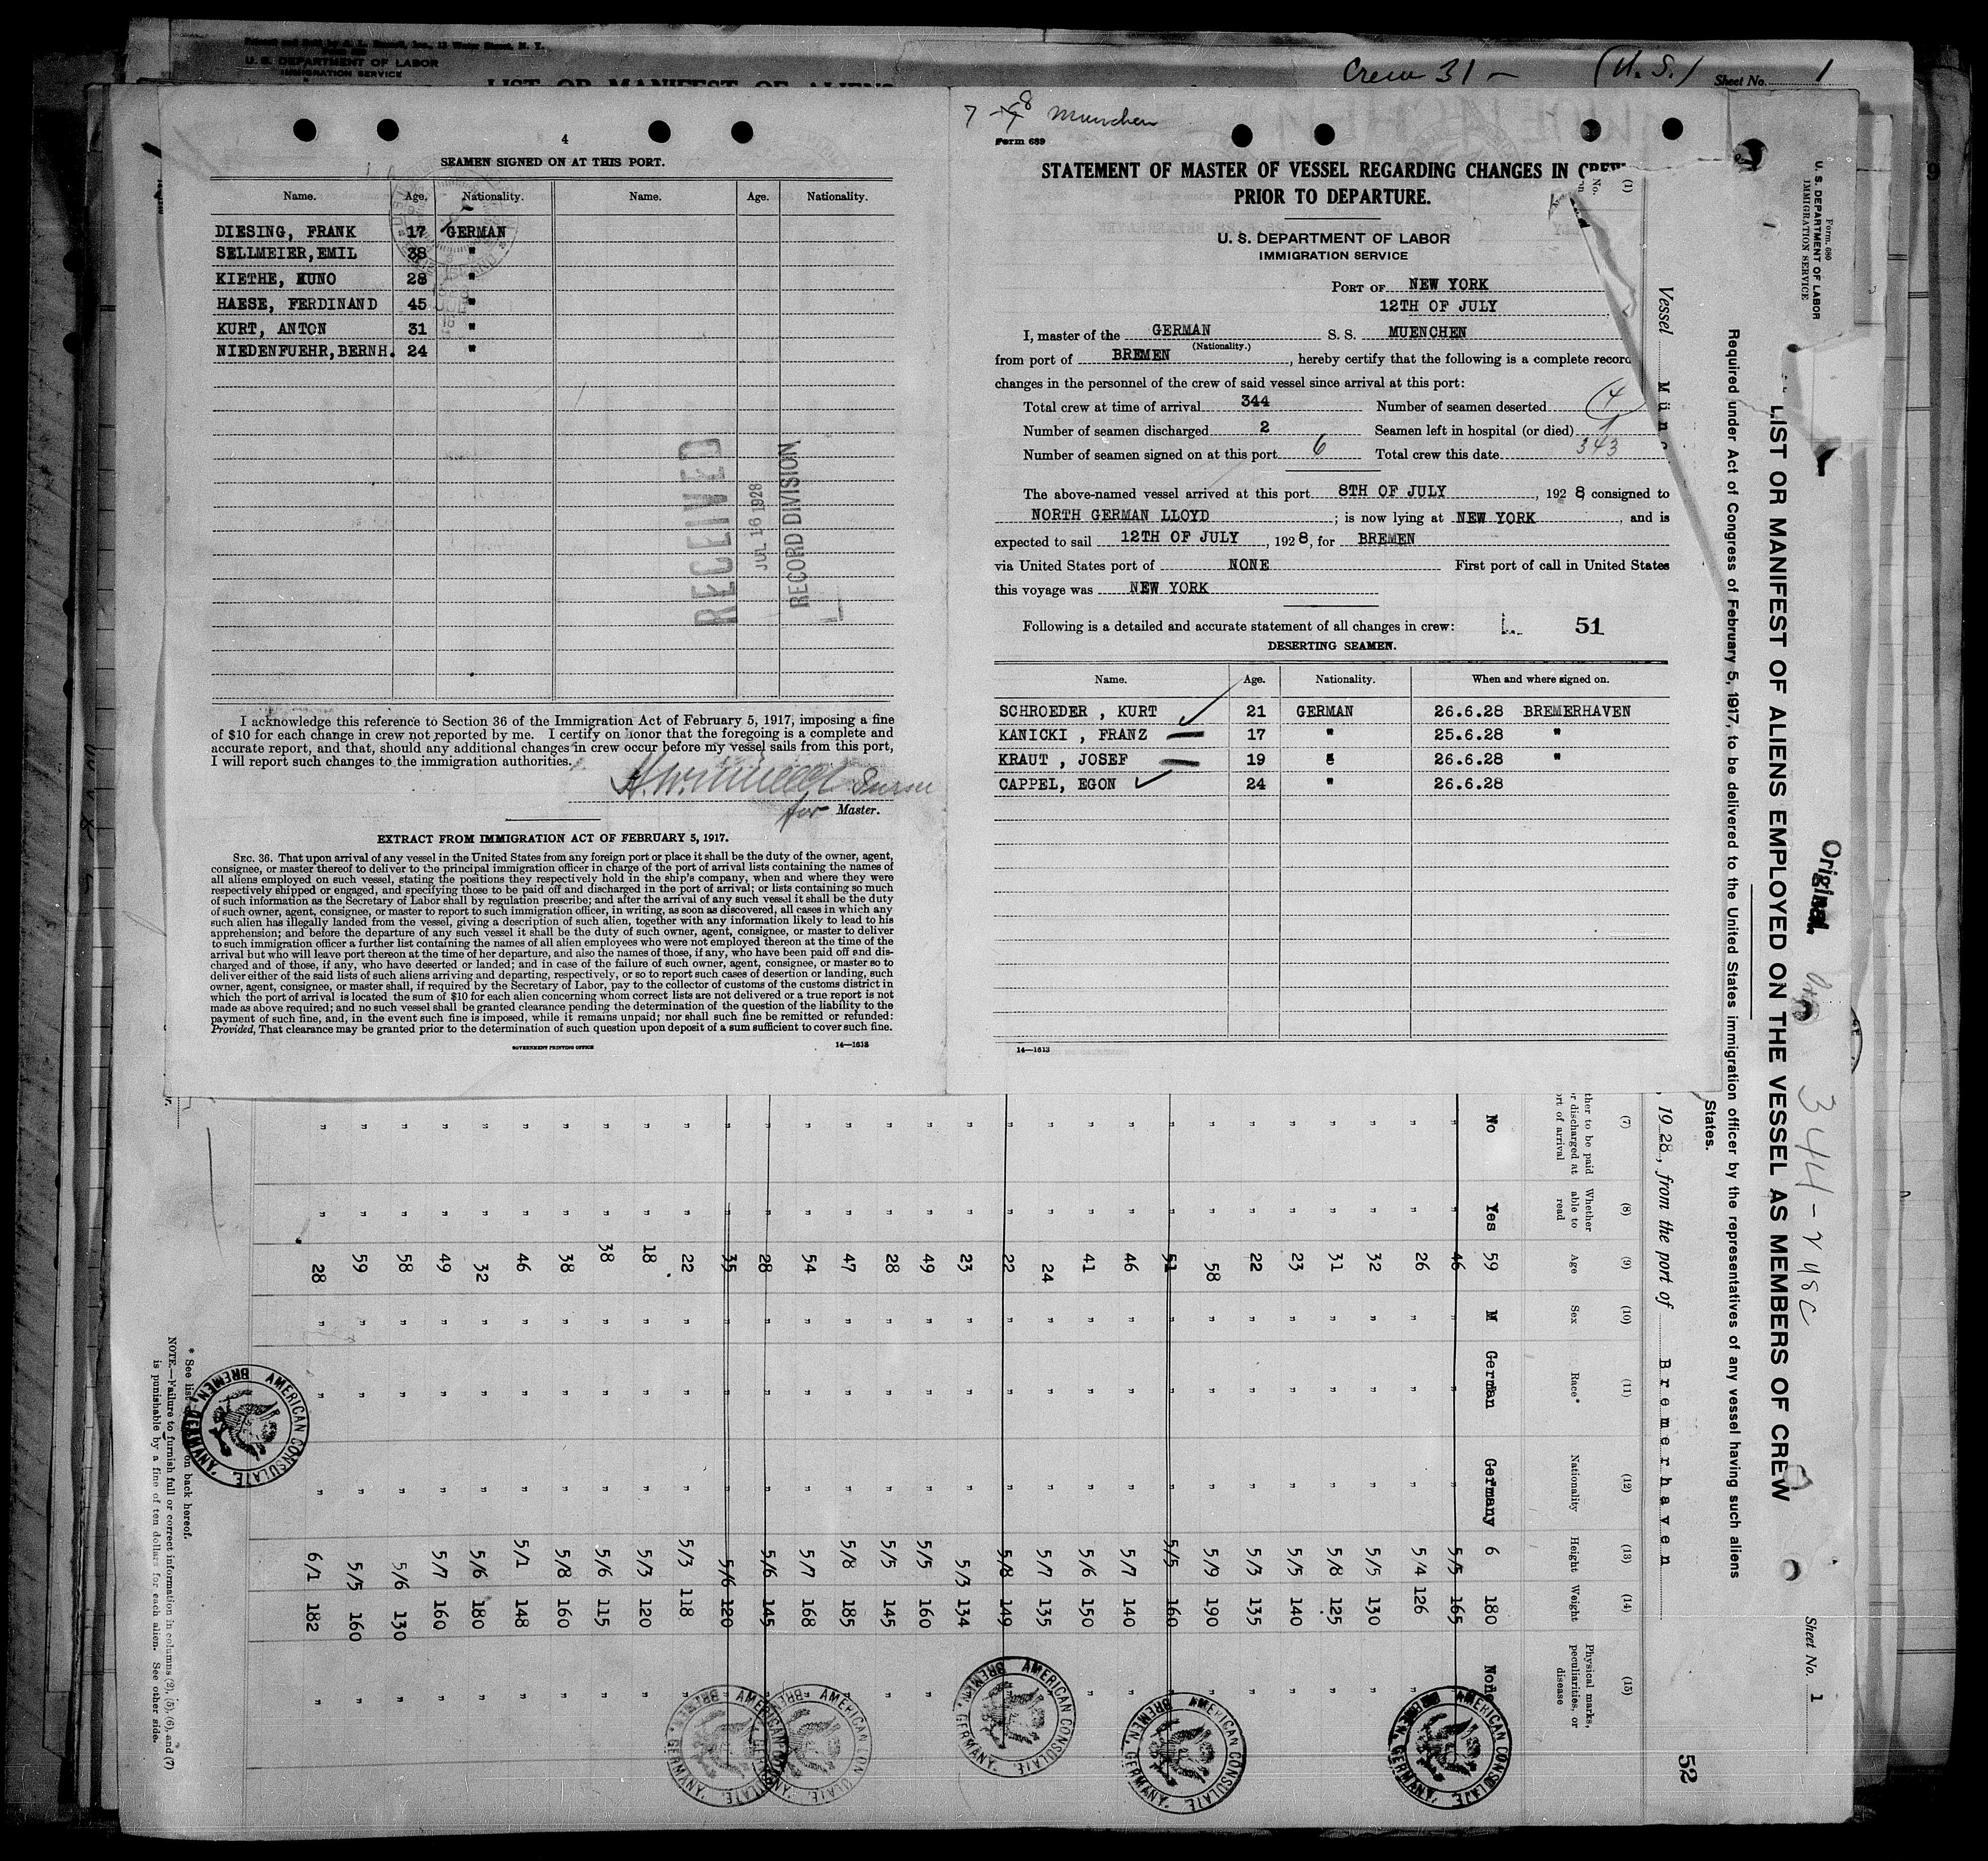 U. S. DEPARTMENT OF LABOR
IMMIGRATION SERVICE
LIST OR MANIFEST OF ALIENS
Crew 31 — (U. S.) Sheet No. 1
4
SEAMEN SIGNED ON AT THIS PORT.
Name. Age. Nationality. Name. Age. Nationality.
DIESING, FRANK 17 GERMAN
SELLMEIER, EMIL 38 "
KIETHE, KUNO 28 "
HAESE, FERDINAND 45 "
KURT, ANTON 31 "
NIEDENFUEHR, BERNH. 24 "
RECEIVED
JUL 16 1928
RECORD DIVISION
I acknowledge this reference to Section 36 of the Immigration Act of February 5, 1917, imposing a fine
of $10 for each change in crew not reported by me. I certify on honor that the foregoing is a complete and
accurate report, and that, should any additional changes in crew occur before my vessel sails from this port,
I will report such changes to the immigration authorities.
for Master.
EXTRACT FROM IMMIGRATION ACT OF FEBRUARY 5, 1917.
SEC. 36. That upon arrival of any vessel in the United States from any foreign port or place it shall be the duty of the owner, agent,
consignee, or master thereof to deliver to the principal immigration officer in charge of the port of arrival lists containing the names of
all aliens employed on such vessel, stating the positions they respectively hold in the ship's company, when and where they were
respectively shipped or engaged, and specifying those to be paid off and discharged in the port of arrival; or lists containing so much
of such information as the Secretary of Labor shall by regulation prescribe; and after the arrival of any such vessel it shall be the duty
of such owner, agent, consignee, or master to report to such immigration officer, in writing, as soon as discovered, all cases in which any
such alien has illegally landed from the vessel, giving a description of such alien, together with any information likely to lead to his
apprehension; and before the departure of any such vessel it shall be the duty of such owner, agent, consignee, or master to deliver
to such immigration officer a further list containing the names of all alien employees who were not employed thereon at the time of the
arrival but who will leave port thereon at the time of her departure, and also the names of those, if any, who have been paid off and dis-
charged and of those, if any, who have deserted or landed; and in case of the failure of such owner, agent, consignee, or master so to
deliver either of the said lists of such aliens arriving and departing, respectively, or so to report such cases of desertion or landing, such
owner, agent, consignee, or master shall, if required by the Secretary of Labor, pay to the collector of customs of the customs district in
which the port of arrival is located the sum of $10 for each alien concerning whom correct lists are not delivered or a true report is not
made as above required; and no such vessel shall be granted clearance pending the determination of the question of the liability to the
payment of such fine, and, in the event such fine is imposed, while it remains unpaid; nor shall such fine be remitted or refunded:
Provided, That clearance may be granted prior to the determination of such question upon deposit of a sum sufficient to cover such fine.
GOVERNMENT PRINTING OFFICE 14—1613
7 - 8 Munchen
Form 689
STATEMENT OF MASTER OF VESSEL REGARDING CHANGES IN CREW
PRIOR TO DEPARTURE.
U. S. DEPARTMENT OF LABOR
IMMIGRATION SERVICE
PORT OF NEW YORK
12TH OF JULY
I, master of the GERMAN S. S. MUENCHEN
(Nationality.)
from port of BREMEN, hereby certify that the following is a complete record
changes in the personnel of the crew of said vessel since arrival at this port:
Total crew at time of arrival 344 Number of seamen deserted 4
Number of seamen discharged 2 Seamen left in hospital (or died) 1
Number of seamen signed on at this port 6 Total crew this date 343
The above-named vessel arrived at this port 8TH OF JULY, 1928 consigned to
NORTH GERMAN LLOYD; is now lying at NEW YORK, and is
expected to sail 12TH OF JULY, 1928, for BREMEN
via United States port of NONE First port of call in United States
this voyage was NEW YORK
Following is a detailed and accurate statement of all changes in crew: L. 51
DESERTING SEAMEN.
Name. Age. Nationality. When and where signed on.
SCHROEDER , KURT 21 GERMAN 26.6.28 BREMERHAVEN
KANICKI , FRANZ 17 " 25.6.28 "
KRAUT , JOSEF 19 " 26.6.28 "
CAPPEL, EGON 24 " 26.6.28
14—1613
Form 680
U. S. DEPARTMENT OF LABOR
IMMIGRATION SERVICE
Original
344 - 2 USC
Sheet No. 1
LIST OR MANIFEST OF ALIENS EMPLOYED ON THE VESSEL AS MEMBERS OF CREW
Required under Act of Congress of February 5, 1917, to be delivered to the United States immigration officer by the representatives of any vessel having such aliens
States.
52
Vessel Mün , 1928, from the port of Bremerhaven
(1) (7) (8) (9) (10) (11) (12) (13) (14) (15)
No.
ther to be paid
or discharged at
ort of arrival
Whether
able to
read
Age Sex Race* Nationality Height Weight
Physical marks,
peculiarities, or
disease
No Yes 59 M German Germany 6 180 None
" " 46 " " " 5/5 165 "
" " 26 " " " 5/4 126 "
" " 32 " " " 5/5 130 "
" " 31 " " " 5/8 125 "
" " 23 " " " 5/5 140 "
" " 22 " " " 5/3 135 "
" " 58 " " " 5/9 190 "
" " 51 " " " 5/5 160 "
" " 46 " " " 5/7 140 "
" " 41 " " " 5/6 150 "
" " 24 " " " 5/7 135 "
" " 22 " " " 5/8 149 "
" " 23 " " " 5/3 134 "
" " 49 " " " 5/5 160 "
" " 28 " " " 5/5 145 "
" " 47 " " " 5/8 185 "
" " 54 " " " 5/7 168 "
" " 28 " " " 5/6 145 "
" " 35 " " " 5/6 120 "
" " 22 " " " 5/3 118 "
" " 18 " " " 5/3 120 "
" " 38 " " " 5/6 115 "
" " 38 " " " 5/8 160 "
" " 46 " " " 5/1 148 "
" " 32 " " " 5/6 180 "
" " 49 " " " 5/7 160 "
" " 58 " " " 5/6 130 "
" " 59 " " " 5/5 160 "
" " 28 " " " 6/1 182 "
AMERICAN CONSULATE BREMEN, GERMANY.
AMERICAN CONSULATE BREMEN, GERMANY.
AMERICAN CONSULATE BREMEN, GERMANY.
AMERICAN CONSULATE BREMEN, GERMANY.
AMERICAN CONSULATE BREMEN, GERMANY.
AMERICAN CONSULATE BREMEN, GERMANY.
* See list on back hereof.
NOTE.—Failure to furnish full or correct information in columns (2), (5), (6), and (7)
is punishable by a fine of ten dollars for each alien. See other side.